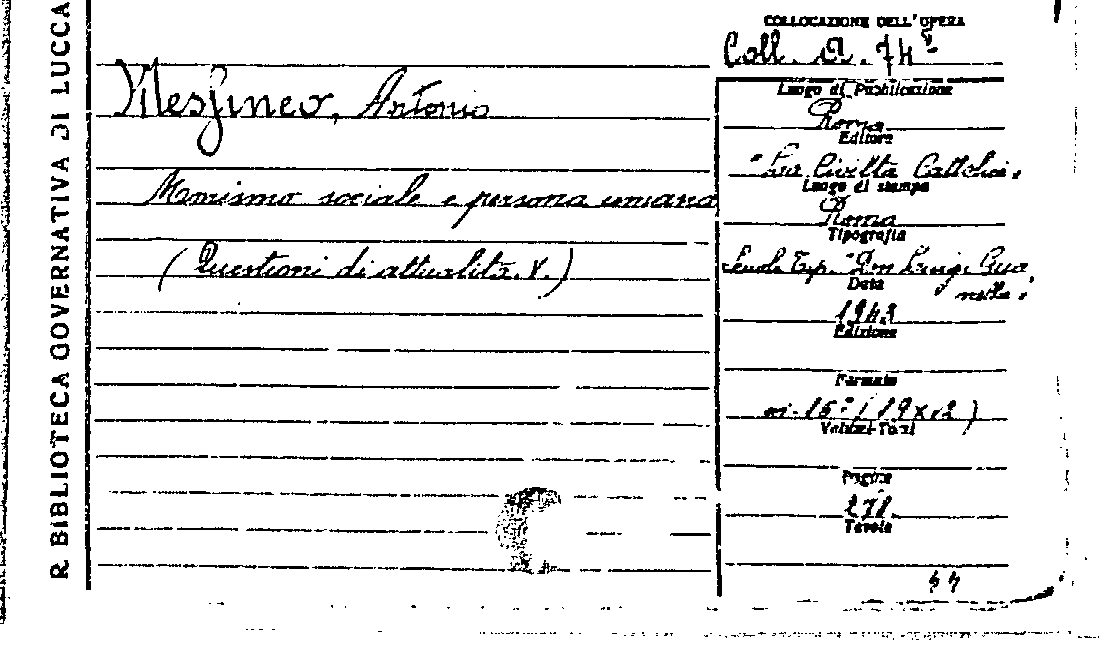 R. BIBLIOTECA GOVERNATIVA DI LUCCA
Messineo, Antonio
Monismo sociale e persona umana
(Questioni di attualità. V.)
COLLOCAZIONE DELL'OPERA
Coll. A. 74
Luogo di Pubblicazione
Roma
Editore
"La Civiltà Cattolica"
Luogo di stampa
Roma
Tipografia
Scuola Tip. "Don Luigi Gua-
nella"
Data
1943
Edizione
Formato
in-16° (19x12)
Volumi-Tomi
Pagine
271.
Tavole
44